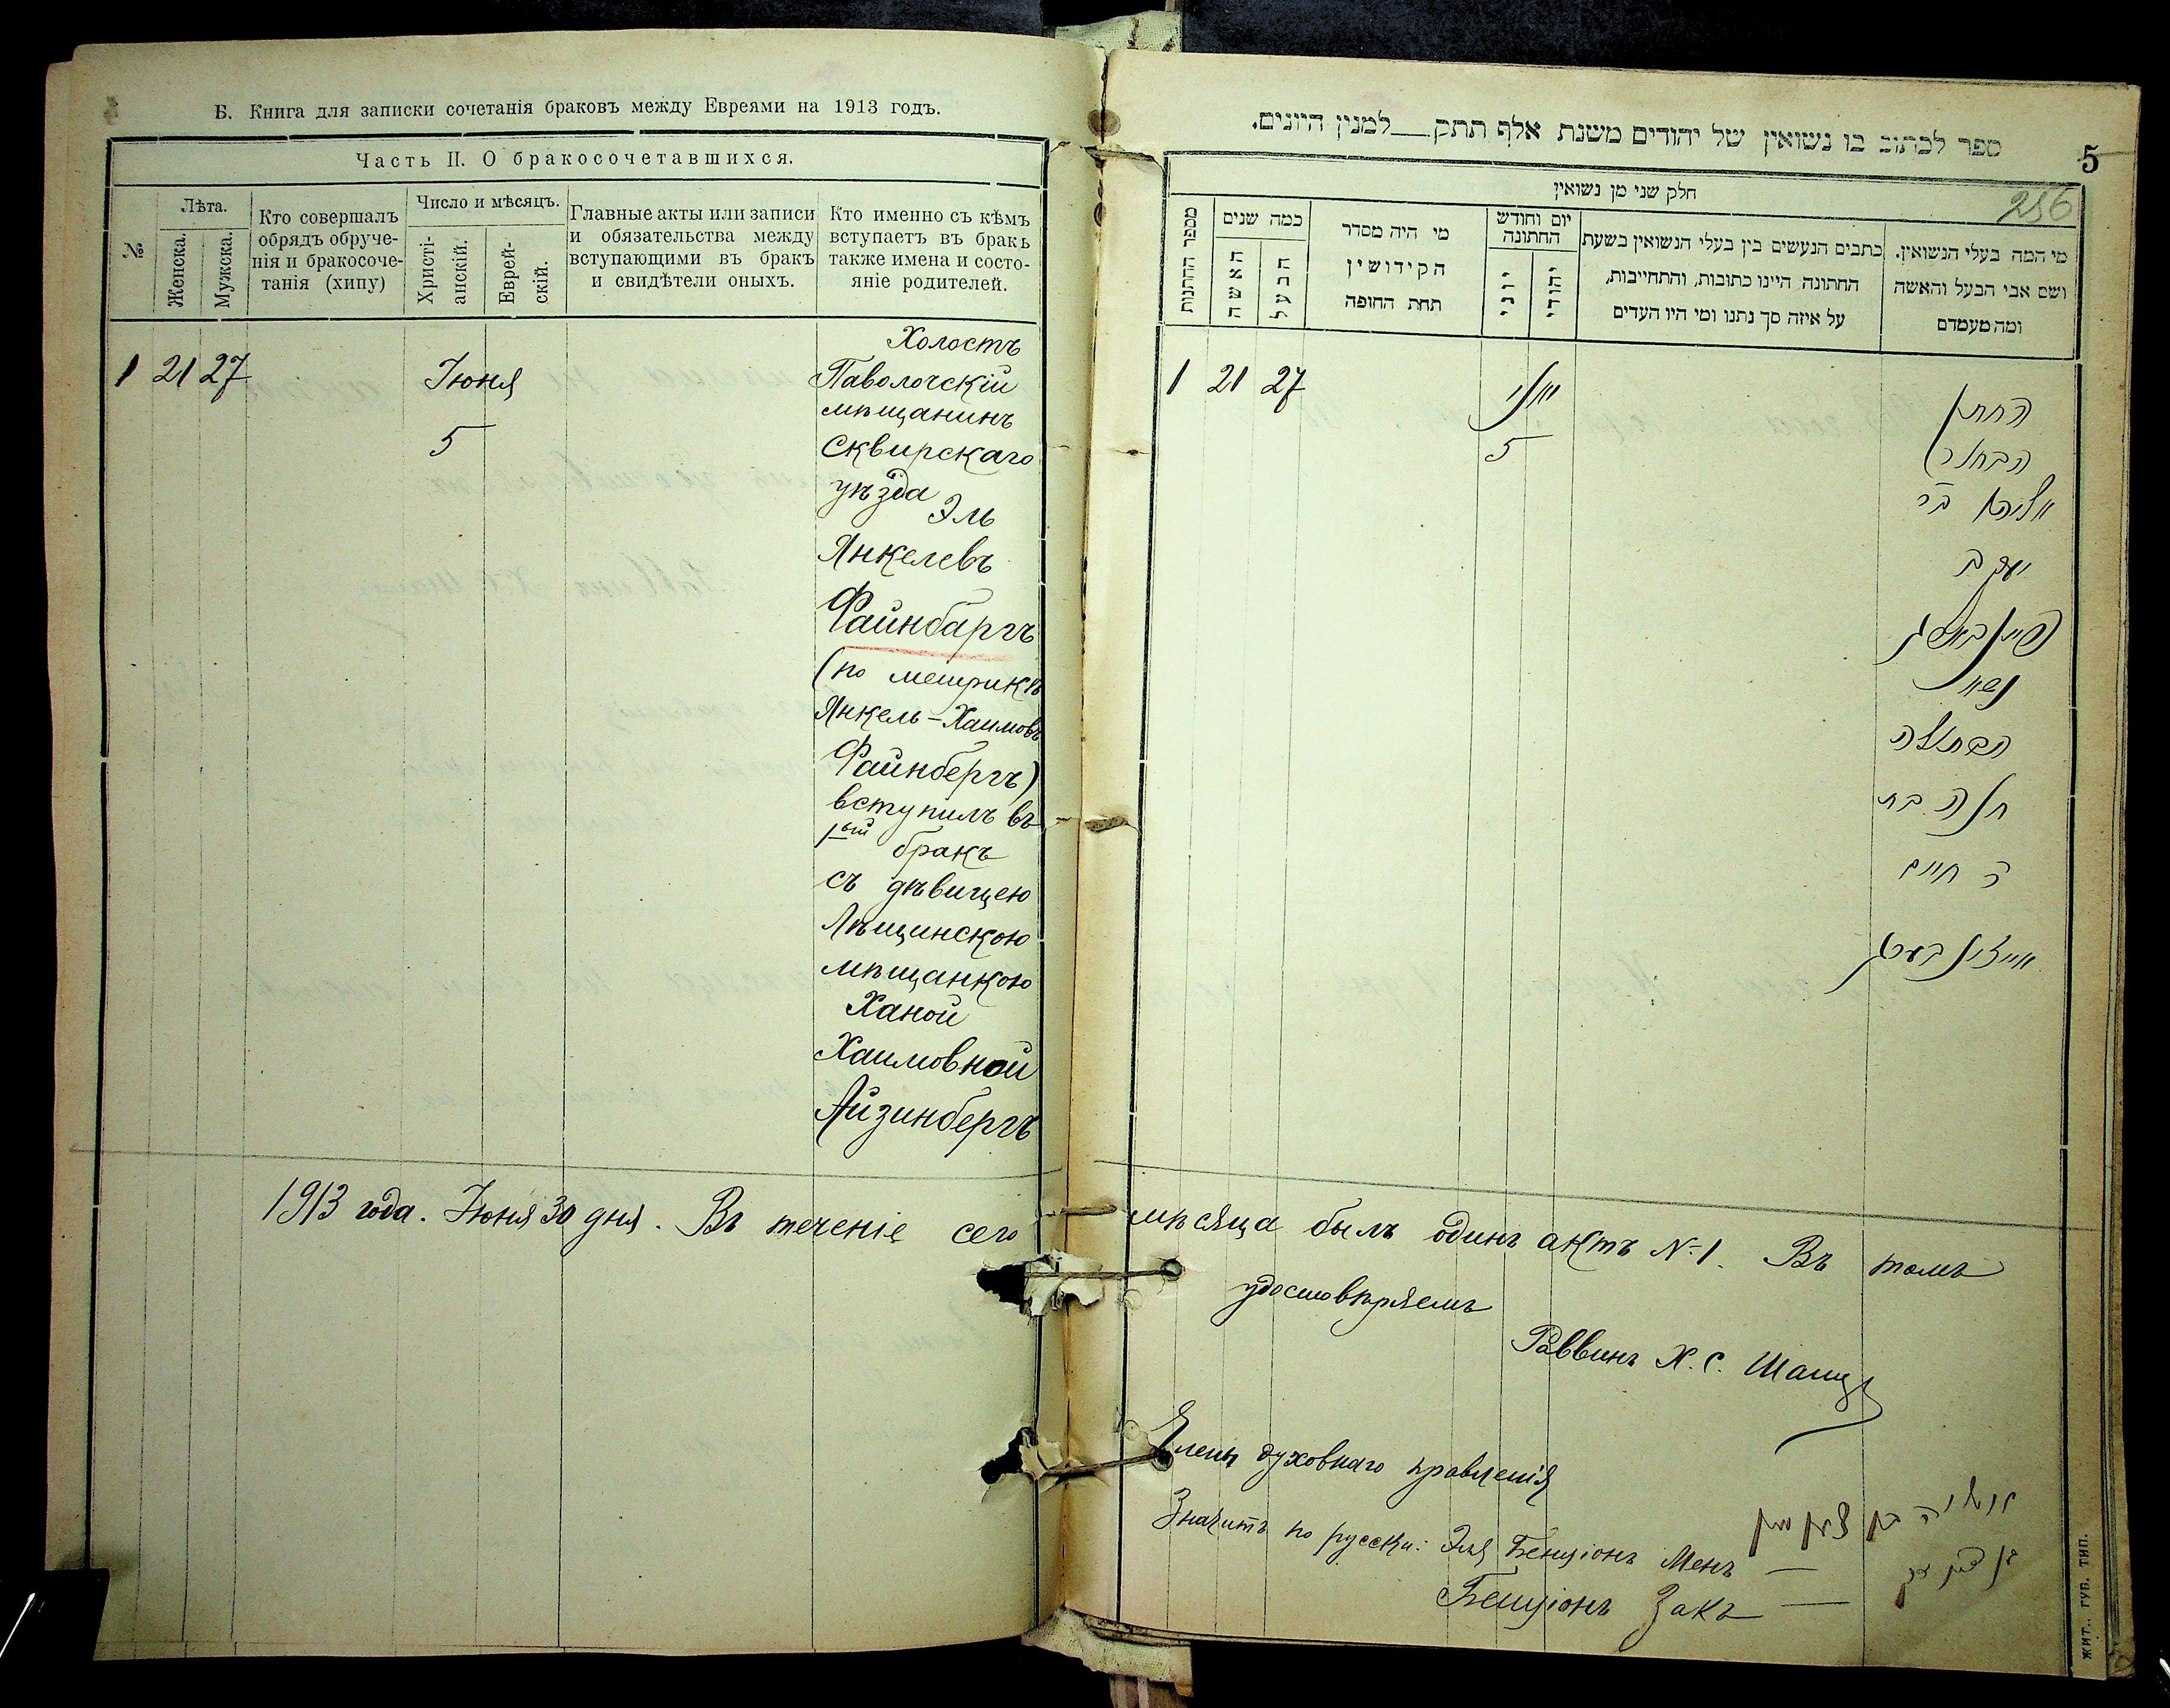 Б. Книга для записки сочетанія браковъ между Евреями на 1913 годъ.
Часть II. О бракосочетавшихся.
№
Лѣта.
Женска.
Мужска.
Кто совершалъ
обрядъ обруче-
нія и бракосоче-
танія (хипу)
Число и мѣсяцъ.
Христі-
анскій.
Еврей-
скій.
Главные акты или записи
и обязательства между
вступающими въ бракъ
и свидѣтели оныхъ.
Кто именно съ кѣмъ
вступаетъ въ бракъ
также имена и состо-
яніе родителей.
1 21 27
Іюня
5
Холостъ
Паволочскій
мѣщанинъ
Сквирскаго
уѣзда
Эль
Янкелевъ
Файнбаргъ
(по метрикѣ
Янкель-Хаимовъ
Файнбергъ)
вступилъ въ
1ый бракъ
съ дѣвицею
Лѣщинскою
мѣщанкою
Ханой
Хаимовной
Айзинбергъ
1913 года. Іюня 30 дня. Въ теченіе сего
ספר לכתוב בו נשואין של יהודים משנת אלף תתק למנין היונים.
5
286
חלק שני מן נשואין
מספר החתנות
כמה שנים
האשה
הבעל
מי היה מסדר
הקידושין
תחת החופה
יום וחודש
החתונה
יוני
יהודי
כתבים הנעשים בין בעלי הנשואין בשעת
החתונה היינו כתובות, והתחייבות,
על איזה סך נתנו ומי היו העדים
מי המה בעלי הנשואין.
ושם אבי הבעל והאשה
ומה מעמדם
1 21 27
יוני
5
החתן
הבחור
אליהו בר
יעקב
פיינבארג
נשא
הבתולה
חנה בת
ר חיים
אייזינבערג
мѣсяца былъ одинъ актъ № 1. Въ томъ
удостовѣряемъ
Раввинъ Х. С.
Членъ духовнаго правленія
Значитъ по русски: Эля Бенціонъ Менъ —
Бенціонъ Закъ —
בן ציון זק
ЖИТ. ГУБ. ТИП.